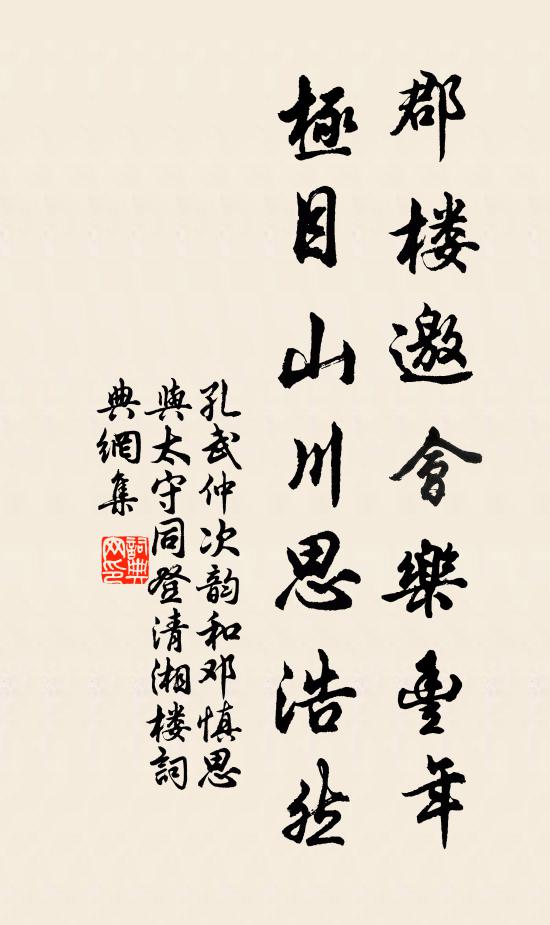 郡楼邀會樂豐年
極目山川思浩然
孔武仲次韵和邓慎思
與太守同登清湘楼詞
典網集
詞典
网印